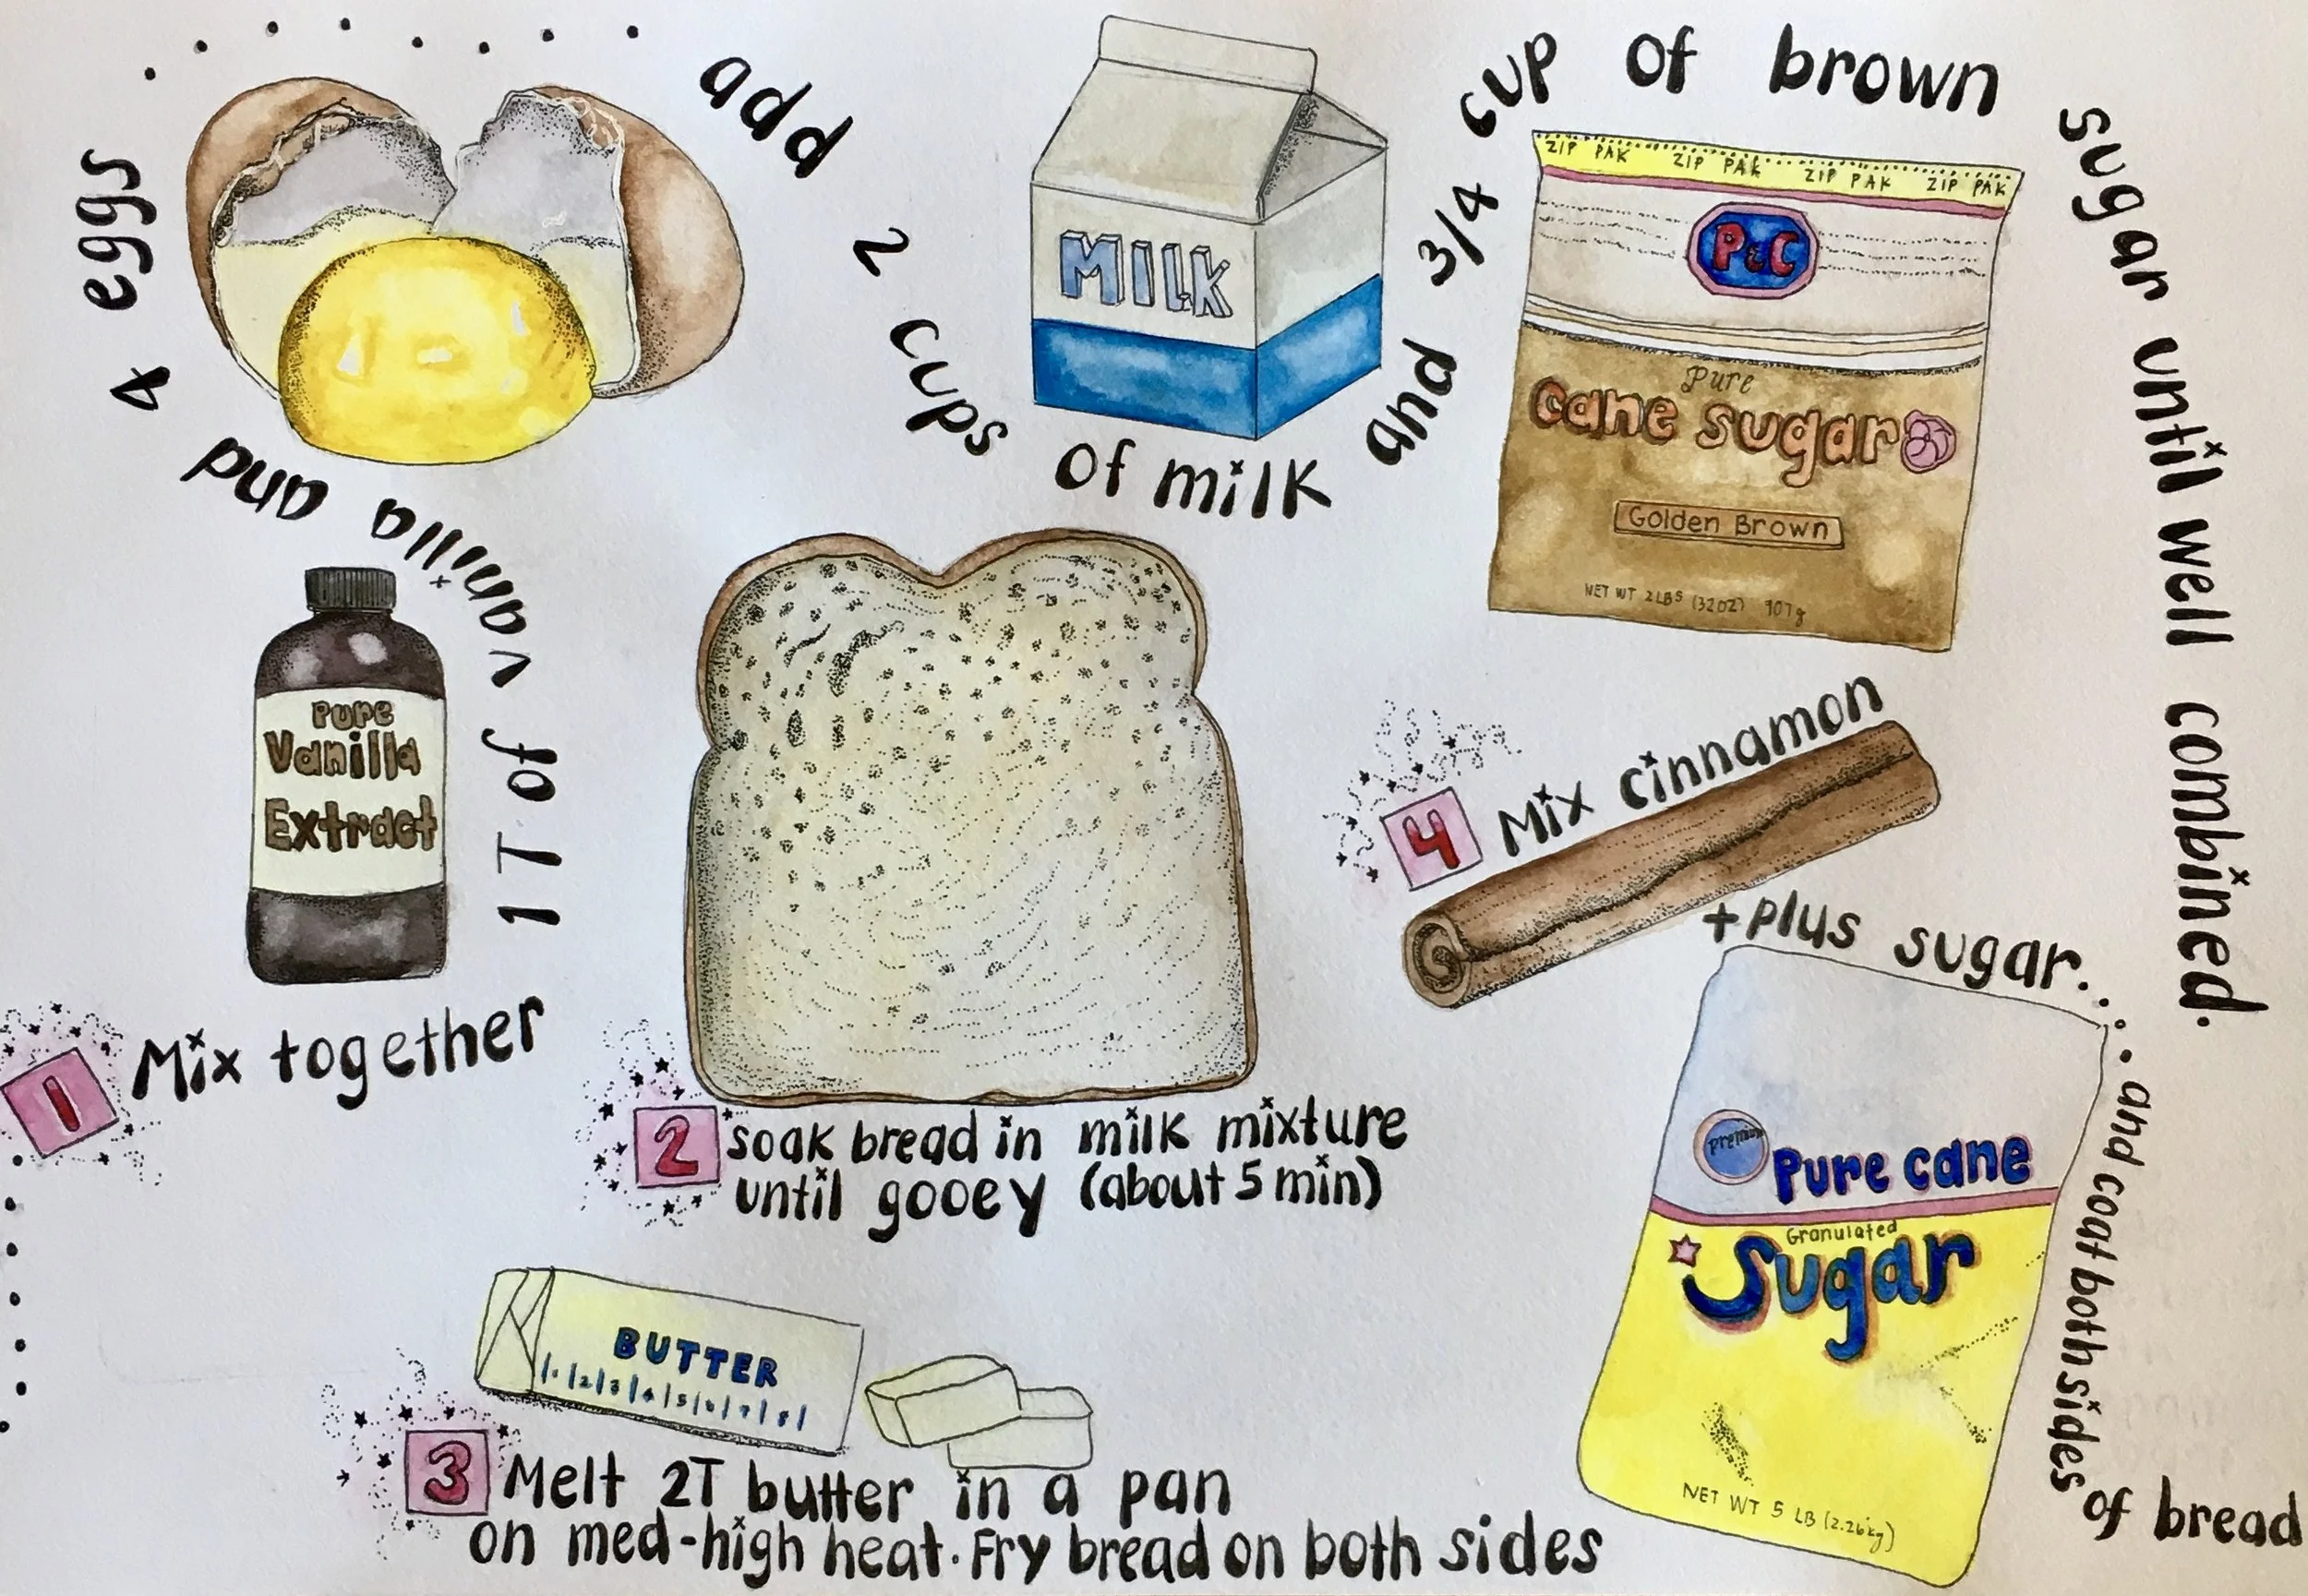 1 Mix together
1 T of vanilla and
4 eggs
add 2 cups of milk
and 3/4 cup of brown
sugar until well combined.
Pure
Vanilla
Extract
MILK
ZIP PAK ZIP PAK ZIP PAK ZIP PAK
P&C
Pure
cane sugar
Golden Brown
NET WT 2LBS (32OZ) 907g
2 soak bread in milk mixture
until gooey (about 5 min)
BUTTER
1 2 3 4 5 6 7 8
3 Melt 2T butter in a pan
on med-high heat. Fry bread on both sides
4 Mix cinnamon
+plus sugar...
...and coat both sides
of bread
premium
Pure cane
Granulated
Sugar
NET WT 5 LB (2.26kg)